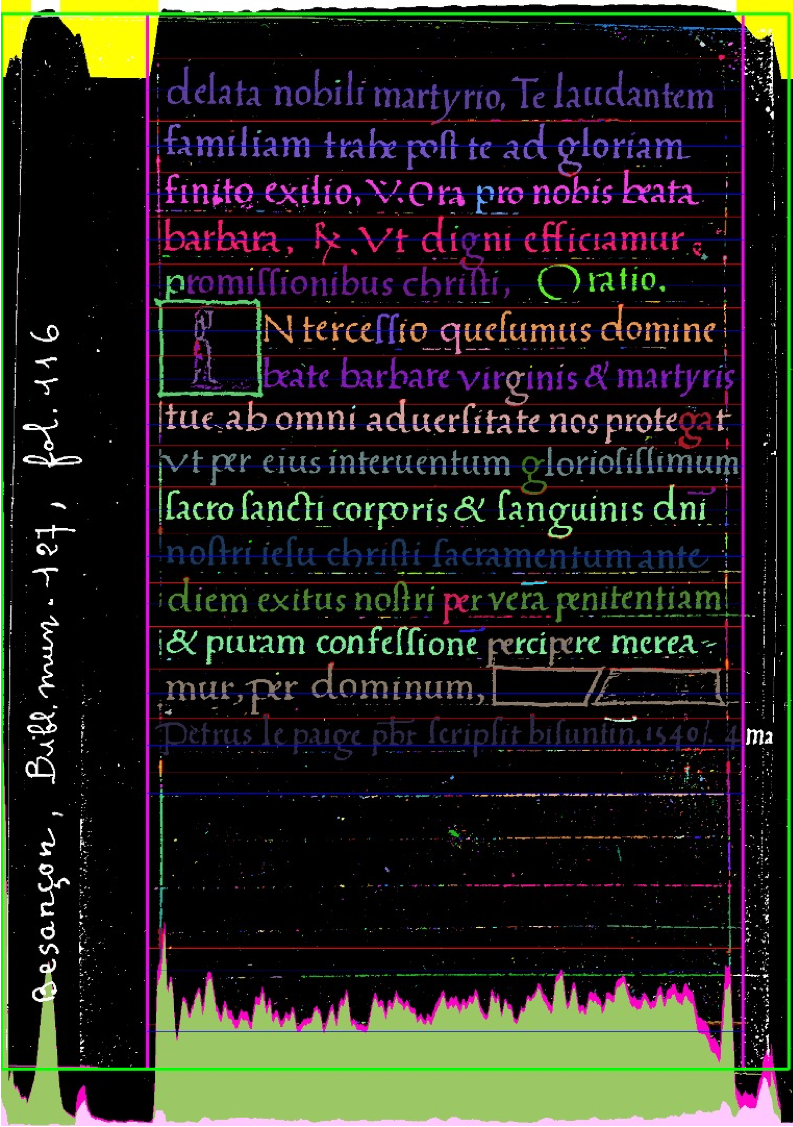 delata nobili martyrio, Te laudantem
familiam trahe post te ad gloriam
finito exilio, V. Ora pro nobis beata
barbara, ℟. Vt digni efficiamur
promiſſionibus chriſti, Oratio.
INterceſſio queſumus domine
beate barbare virginis & martyris
tue ab omni aduerſitate nos protegat
vt per eius interuentum glorioſiſſimum
ſacro ſancti corporis & ſanguinis dni
noſtri ieſu chriſti ſacramentum ante
diem exitus noſtri per vera penitentiam
& puram confeſſione percipere merea-
mur, per dominum,
Petrus le paige pbr ſcripſit biſuntin. 1540/. 4 ma
Besançon, Bibl. mun. 127, fol. 116